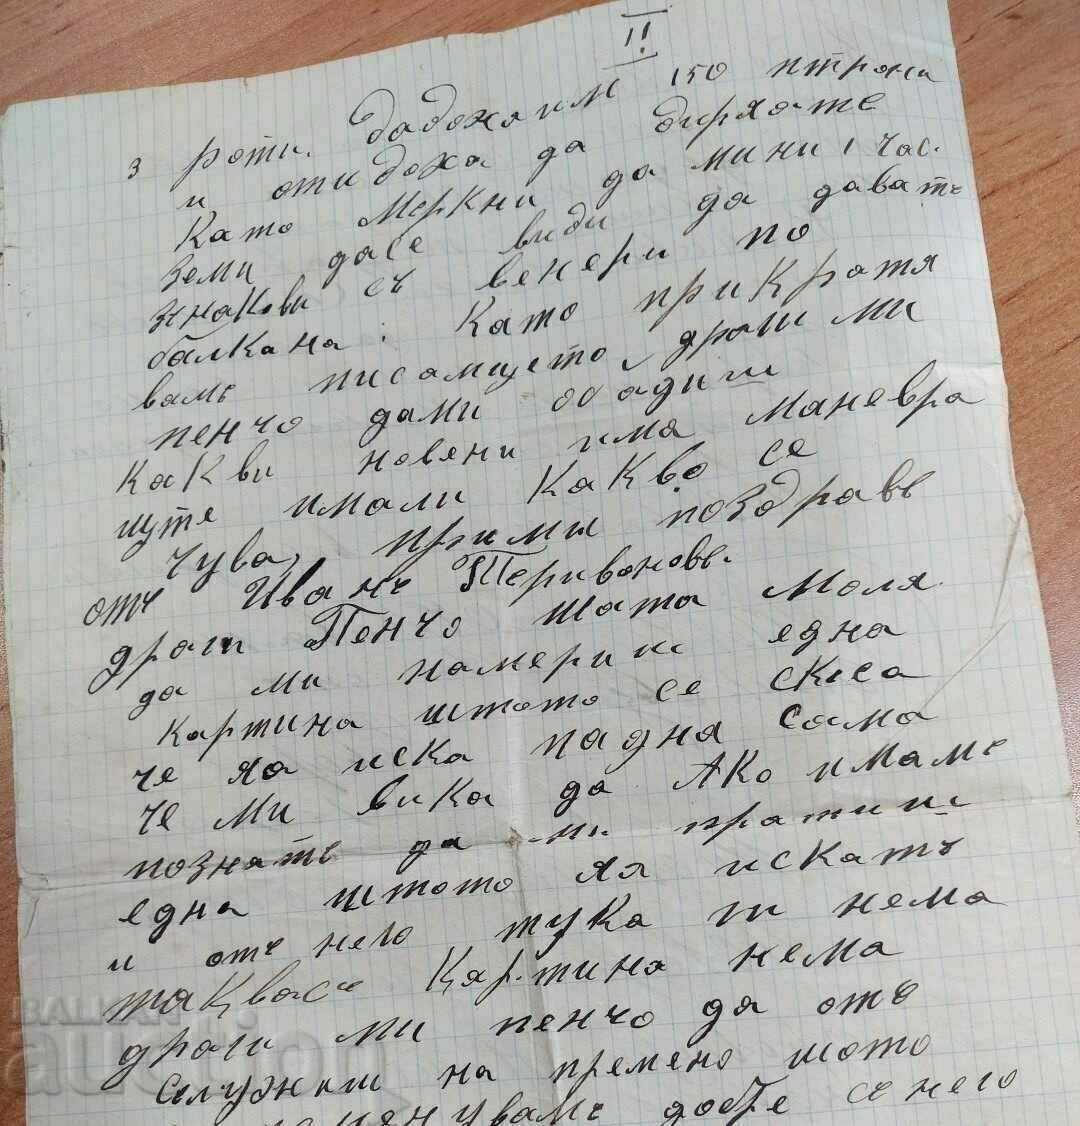 II
3 роти. дадоха им 150 птрони
и отидоха да дирятте
Като Меркни да мини 1 час.
земи дасе види да даватъ
знакови съ венери по
балкана. Като прикратя
вамъ писамцето, драги ми
пенчо дами обадиш
какви новени има маневра
щте имали Какво се
чува, прими поздравъ
отъ Иванъ Перивоновъ.
драги Пенчо шата Моля
да ми намериш една
картина штото се скъса
че яа иска падна сама
че ми вика да Ако имаме
познатъ да ми пратиш
една штото яя искатъ
и отъ него тука ти нема
такваси Картина нема
драги ми пенчо да отъ
служиш на премено шото
добре съ него
BALKAN
auction